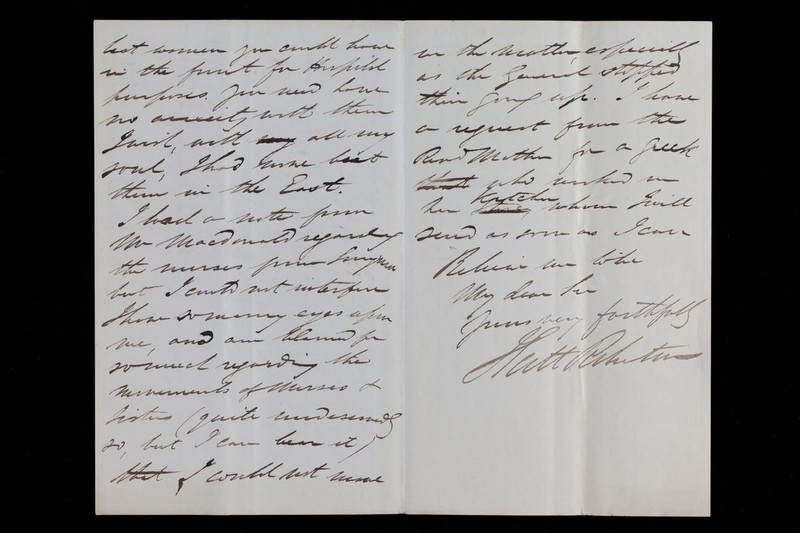 best women you could have
in the front for Hospital
purposes. You need have
no anxiety with them
I wish, with all my
soul, I had none but
them in the East.
I had a note from
Mr Macdonald regarding
the nurses from Smyrna
but I could not interfere
I have so many eyes upon
me, and am blamed for
so much regarding the
movements of Nurses &
Sisters (quite undeservedly
so, but I can bear it)
that I could not move
in the matter especially
as the General stopped
their going up. I have
a request from the
Revd Mother for a Greek
who worked in
her Kitchen whom I will
send as soon as I can
Believe me to be
My dear Sir
Yours very faithfully